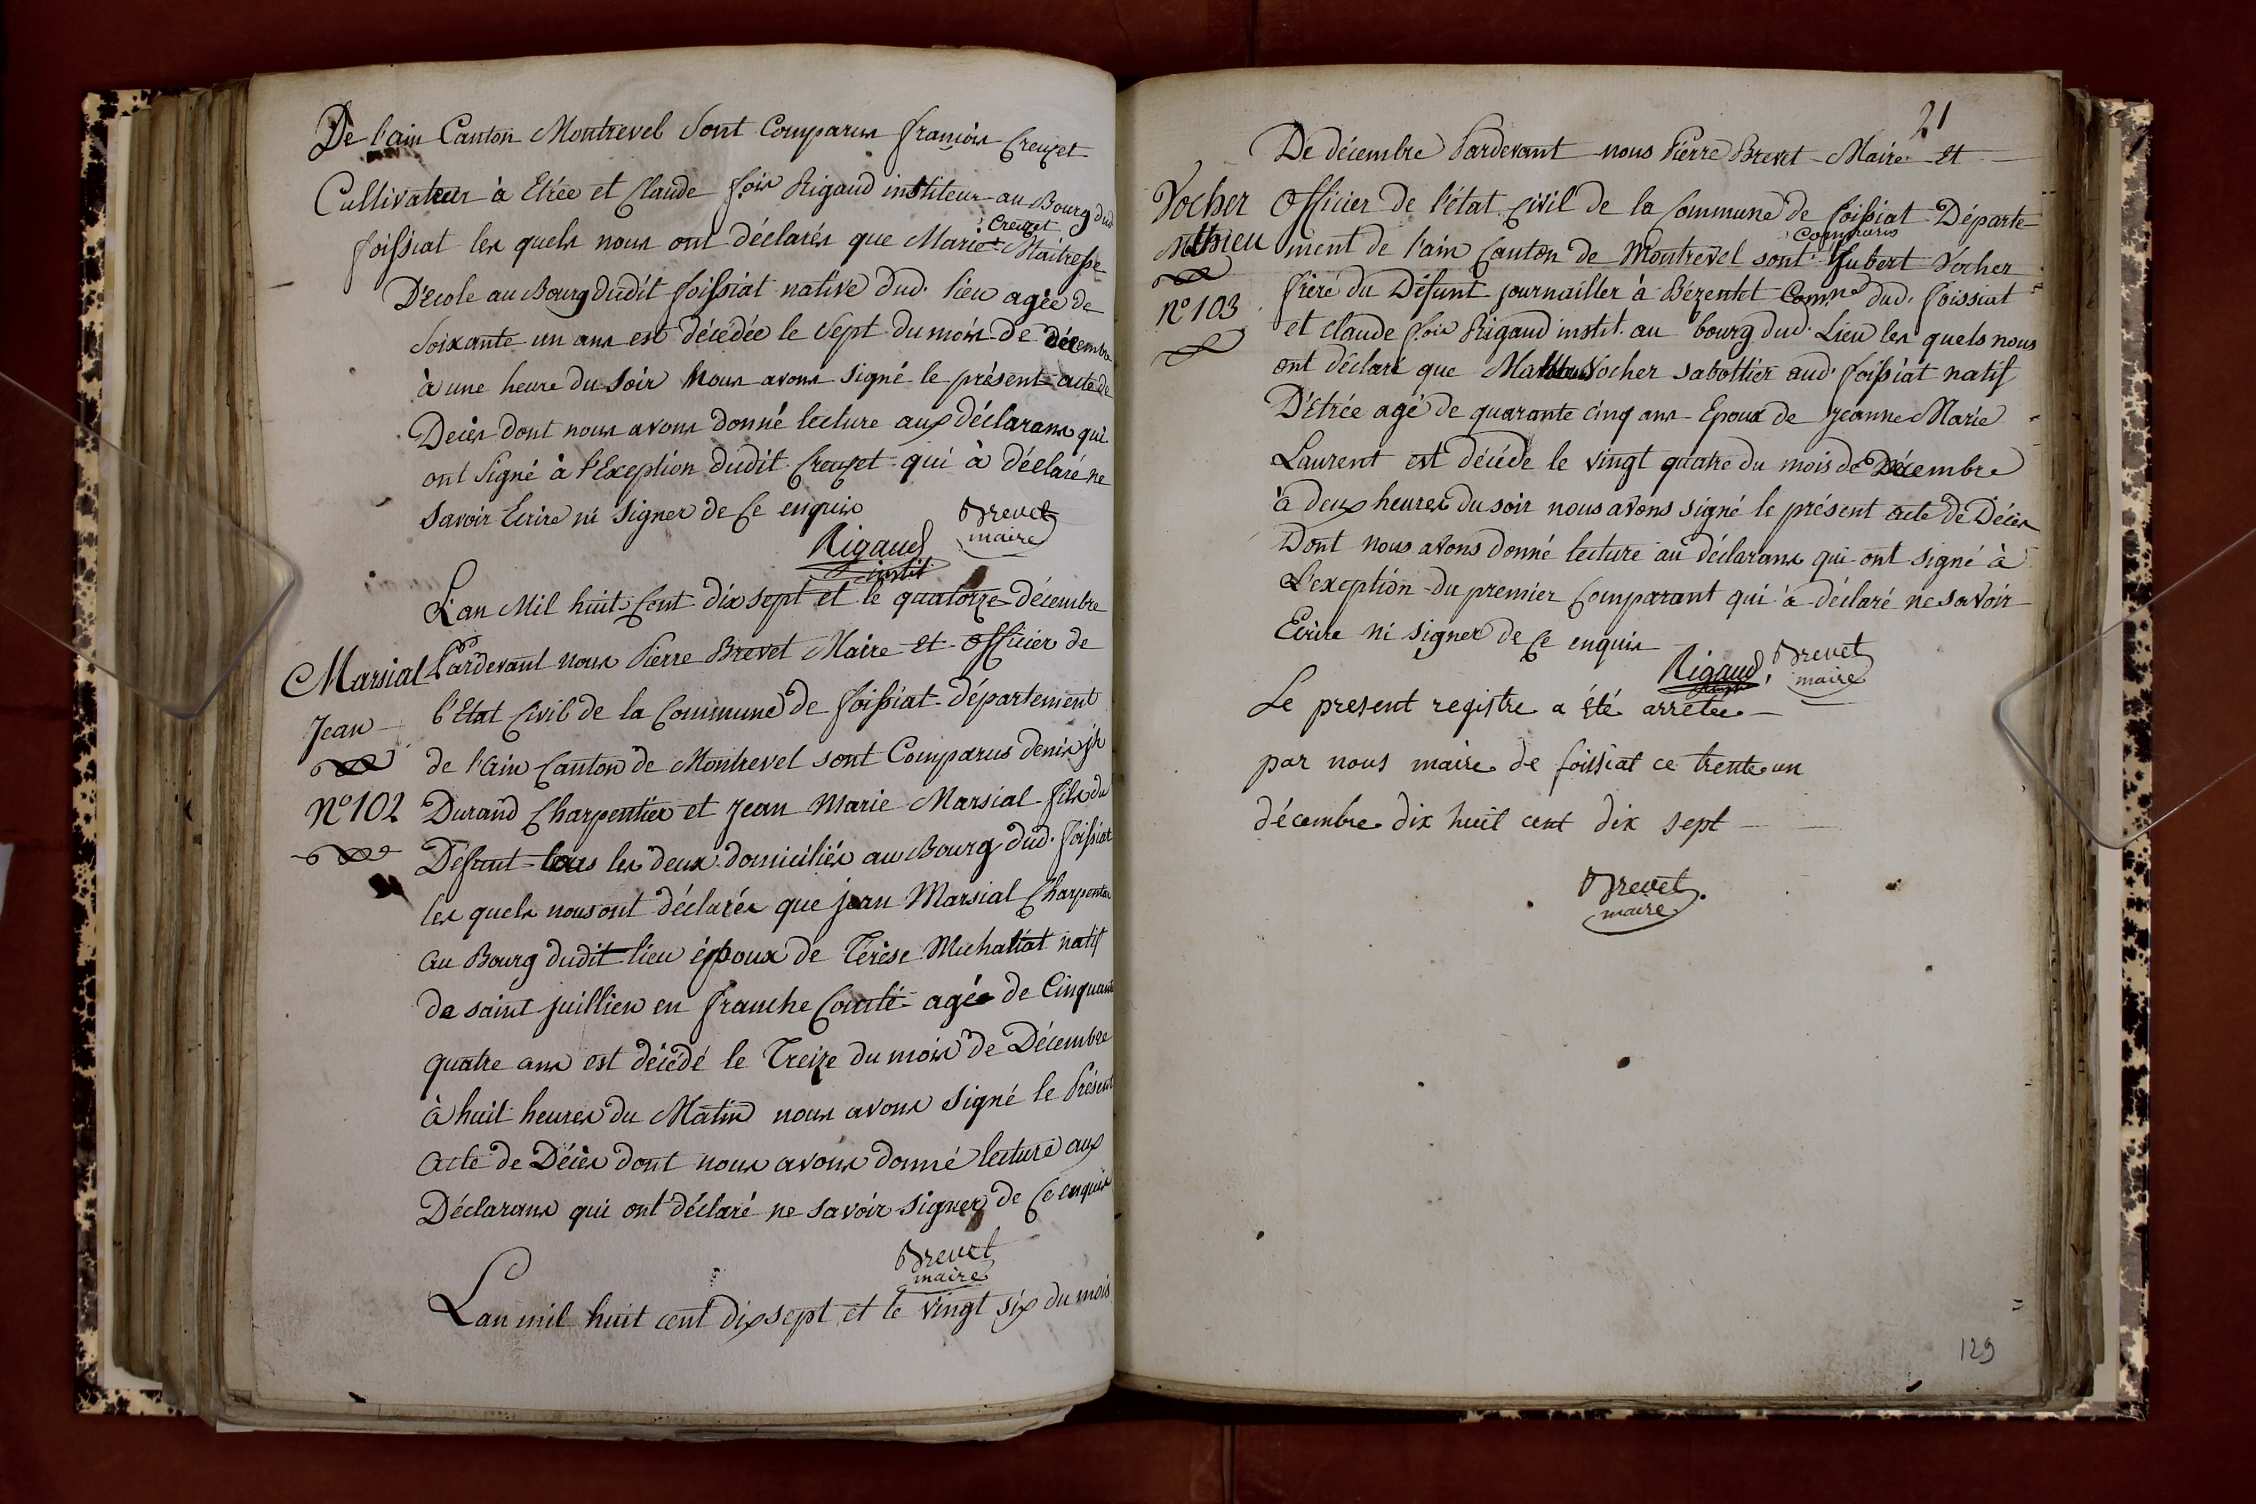 De l'ain Canton Montrevel sont comparus françois Creuzet
Cultivateur à Etrée et Claude fois Rigaud instituteur au Bourg dud
Creuzet
foissiat les quels nous ont déclarés que Marie Maitresse
D'Ecole au Bourg dudit foissiat native dud. lieu agée de
soixante un ans est décédée le sept du mois de décembre
à une heure du soir Nous avons signé le présent acte de
Decès dont nous avons donné lecture aux déclarans qui
ont signé à l'Exeption dudit Creuzet qui à déclaré ne
savoir Ecrire ni signer de Ce enquis
Brevet
maire
Rigaud
instit.
L'an Mil huit Cent dix sept et le quatorze décembre
Marsial
Jean
N° 102
Pardevant nous Pierre Brevet Maire et officier de
l'Etat Civil de la Commune de foissiat département
de l'ain Canton de Montrevel sont Comparus denis jh
Durand Charpentier et Jean Marie Marsial fils du
Defunt tous les deux domiciliés au Bourg dud. foissiat
les quels nous ont déclarés que jean Marsial Charpentier
au Bourg dudit lieu époux de Terèse Michaliat natif
de saint juillien en franche Comté agée de Cinquante
quatre ans est décédé le Treize du mois de Décembre
à huit heures du Matin nous avons signé le Présent
acte de Décès dont nous avons donné lecture aux
Déclarans qui ont déclaré ne savoir signer de Ce enquis
Brevet
maire
L'an mil huit cent dix sept et le vingt six du mois
21
De décembre Pardevant nous Pierre Brevet Maire et
Vocher
Mthieu
N° 103
Officier de l'état Civil de la Commune de foissiat Départe
Comparus
ment de l'ain Canton de Montrevel sont hubert Vocher
frère du Défunt journailler à Bézentet Comne dud. foissiat
et claude fois Rigaud instit. au bourg dud. Lieu les quels nous
ont déclaré que Mathieu Vocher sabottier aud. foissiat natif
D'Etrée agé de quarante cinq ans Epoux de Jeanne Marie
Laurent est décéde le vingt quatre du mois de Décembre
à deux heures du soir nous avons signé le présent acte de Décès
Dont nous avons donné lecture au déclarans qui ont signé à
L'exception du premier Comparant qui à déclaré ne savoir
Ecrire ni signer de Ce enquis
Rigaud
Brevet
maire
Le present registre a été arretée
par nous maire de foissiat ce trente un
décembre dix huit cent dix sept
Brevet
maire
129